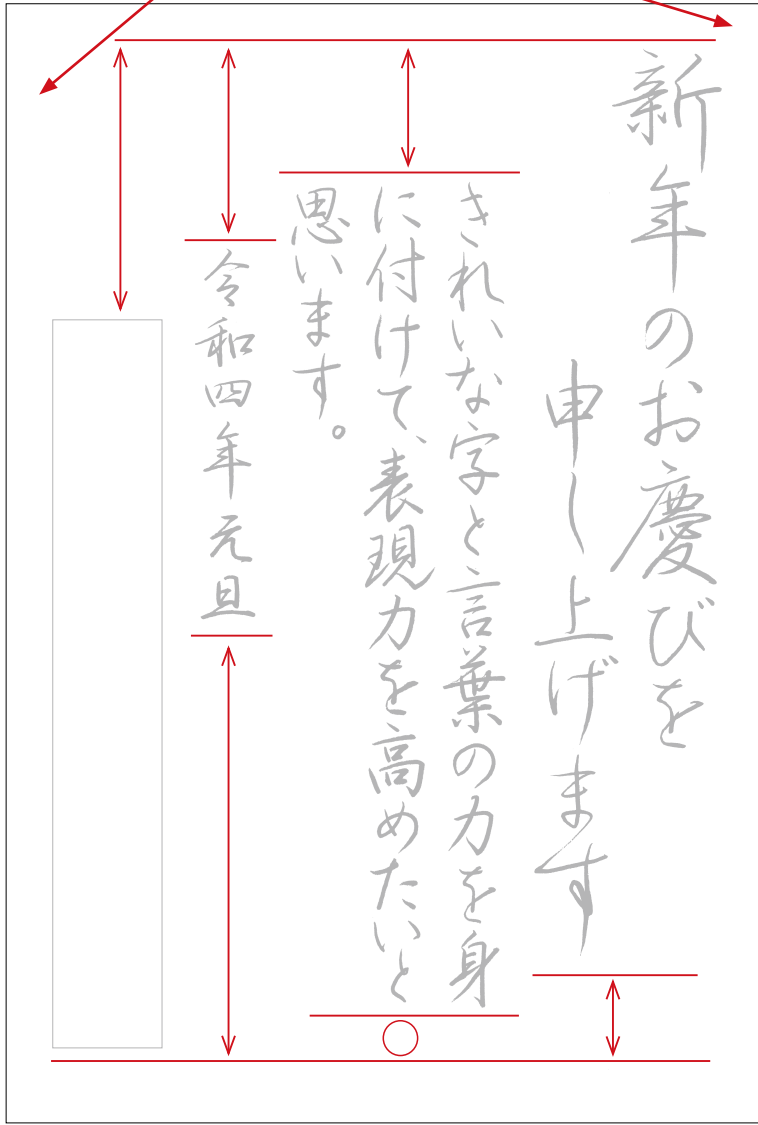 新年のお慶びを
申し上げます
きれいな字と言葉の力を身
に付けて、表現力を高めたいと
思います。
令和四年元旦